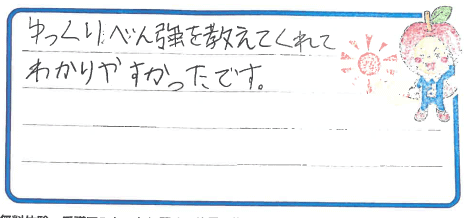 ゆっくりべん強を教えてくれて
わかりやすかったです。